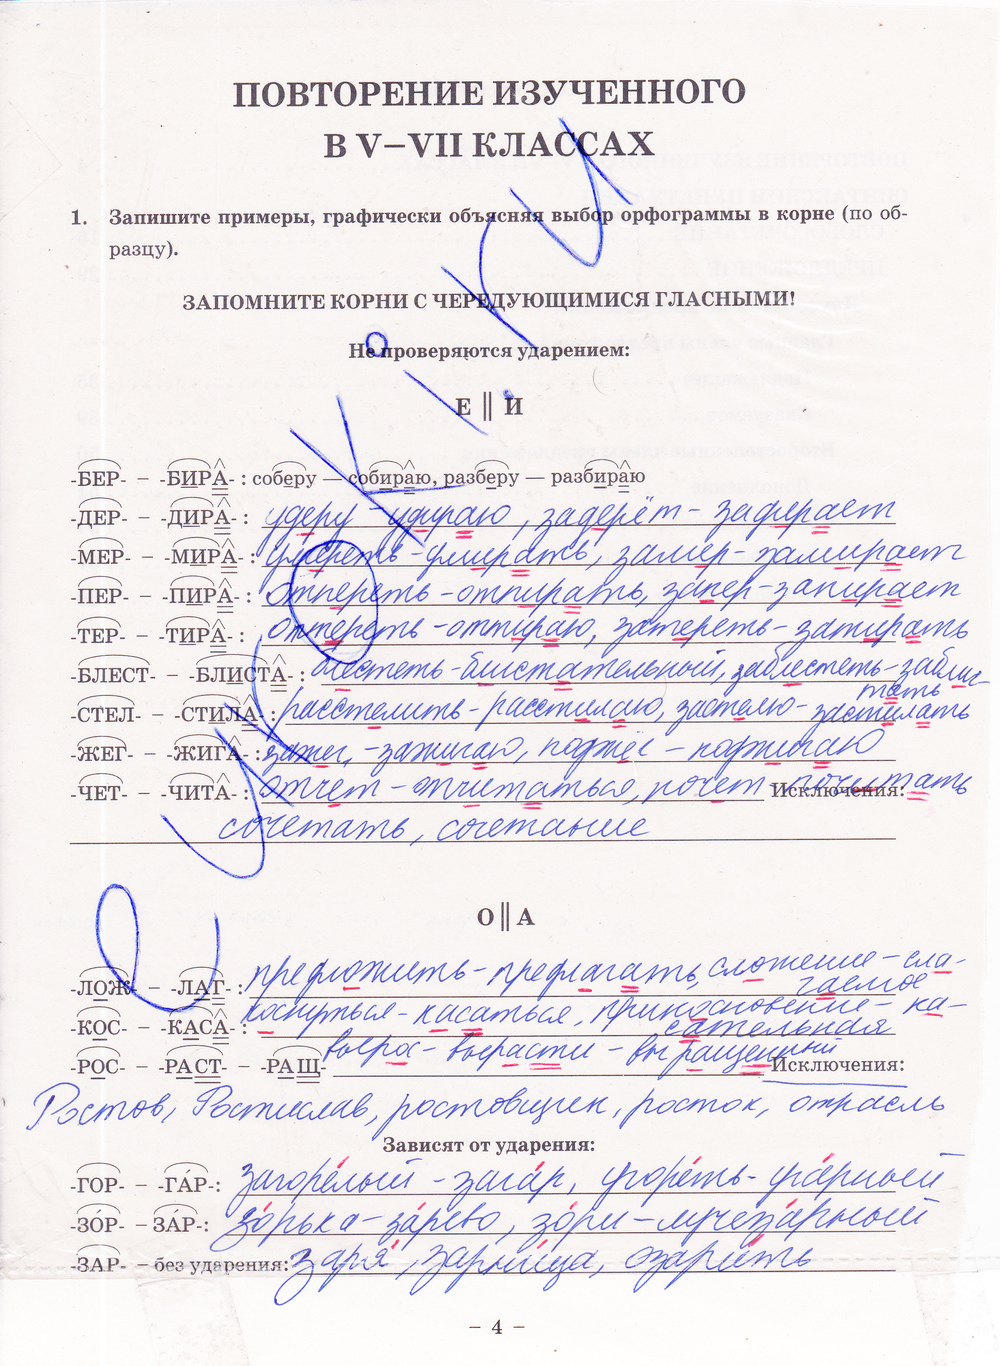 ПОВТОРЕНИЕ ИЗУЧЕННОГО
В V–VII КЛАССАХ
1. Запишите примеры, графически объясняя выбор орфограммы в корне (по об-
разцу).
ЗАПОМНИТЕ КОРНИ С ЧЕРЕДУЮЩИМИСЯ ГЛАСНЫМИ!
Не проверяются ударением:
Е || И
-БЕР- – -БИРА- : соберу — собираю, разберу — разбираю
-ДЕР- – -ДИРА- : удеру - удираю, задерёт - задирает
-МЕР- – -МИРА- : умереть - умирать, замер - замирает
-ПЕР- – -ПИРА- : отпереть - отпирать, запер - запирает
-ТЕР- – -ТИРА- : оттереть - оттираю, затереть - затирать
-БЛЕСТ- – -БЛИСТА- : блестеть - блистательный, заблестеть - заблис-
тать
-СТЕЛ- – -СТИЛА- : расстелить - расстилаю, застелю - застилать
-ЖЕГ- – -ЖИГА- : зажег, - зажигаю, поджёг - поджигаю
-ЧЕТ- – -ЧИТА- : отчет - отчитаться, почет - почитать Исключения:
сочетать, сочетание
О || А
-ЛОЖ- – -ЛАГ- : предложить - предлагать, сложение - сла-
гаемое
-КОС- – -КАСА- : коснуться - касаться, прикосновение - ка-
сательная
-РОС- – -РАСТ- – -РАЩ- вырос - вырасти - выращенный Исключения:
Ростов, Ростислав, ростовщик, росток, отрасль
Зависят от ударения:
-ГОР- – -ГА́Р-: загоре́лый - зага́р, угоре́ть - уга́рный
-ЗО́Р- – ЗА́Р-: зо́рька - за́рево, зо́ри - лучеза́рный
-ЗАР- – без ударения: заря́, зарни́ца, озари́ть
– 4 –
euroki.ru